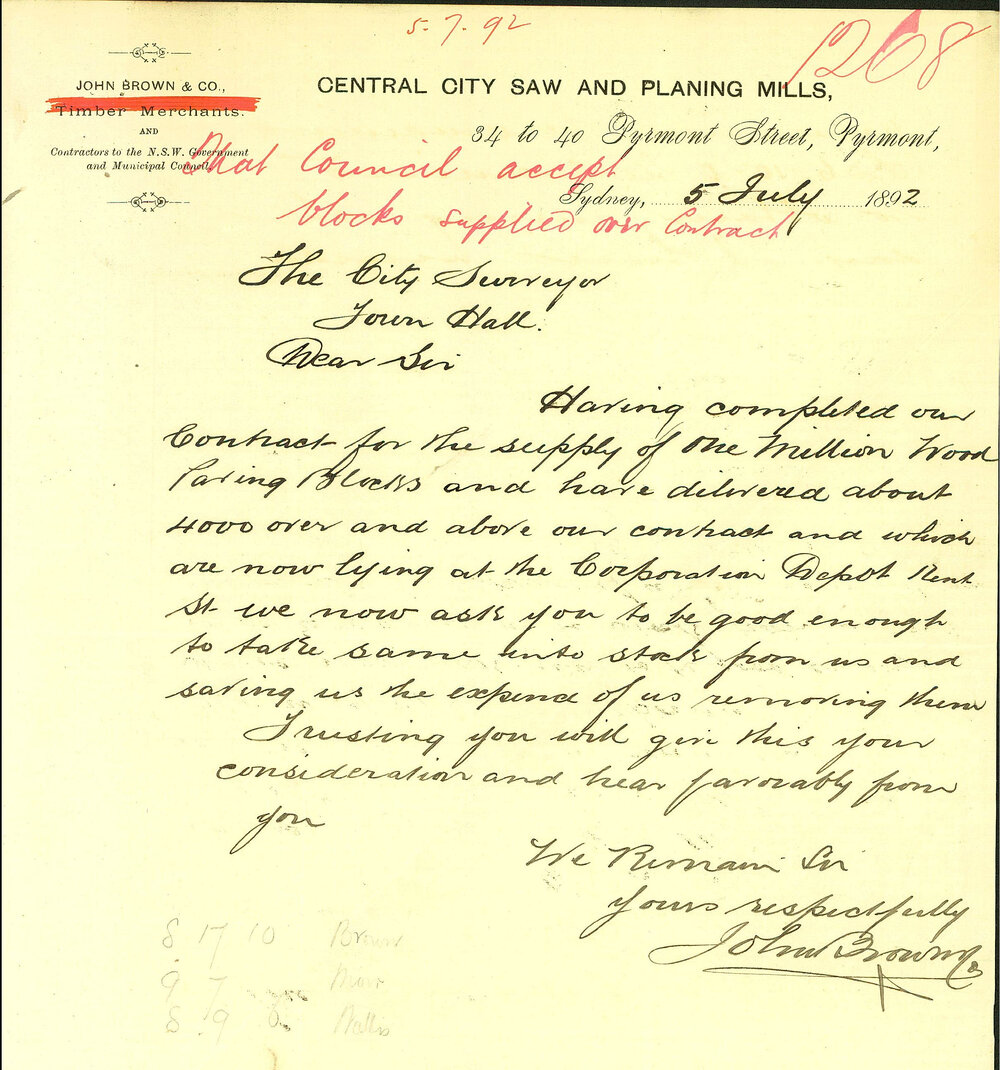 5.7.92
1268
JOHN BROWN & CO.,
Timber Merchants.
AND
Contractors to the N.S.W. Government
and Municipal Council,
CENTRAL CITY SAW AND PLANING MILLS,
34 to 40 Pyrmont Street, Pyrmont,
Sydney, 5 July 1892
That Council accept
blocks supplied over Contract
The City Surveyor
Town Hall.
Dear Sir
Having completed our
Contract for the supply of One Million Wood
Paving Blocks and have delivered about
4000 over and above our contract and which
are now lying at the Corporation Depot Kent
St we now ask you to be good enough
to take same into stock from us and
saving us the expence of us removing them
Trusting you will give this your
consideration and hear favorably from
you
We Remain Sir
yours respectfully
John Brown & Co
8 17 10 Brown
9 7
8 9 0